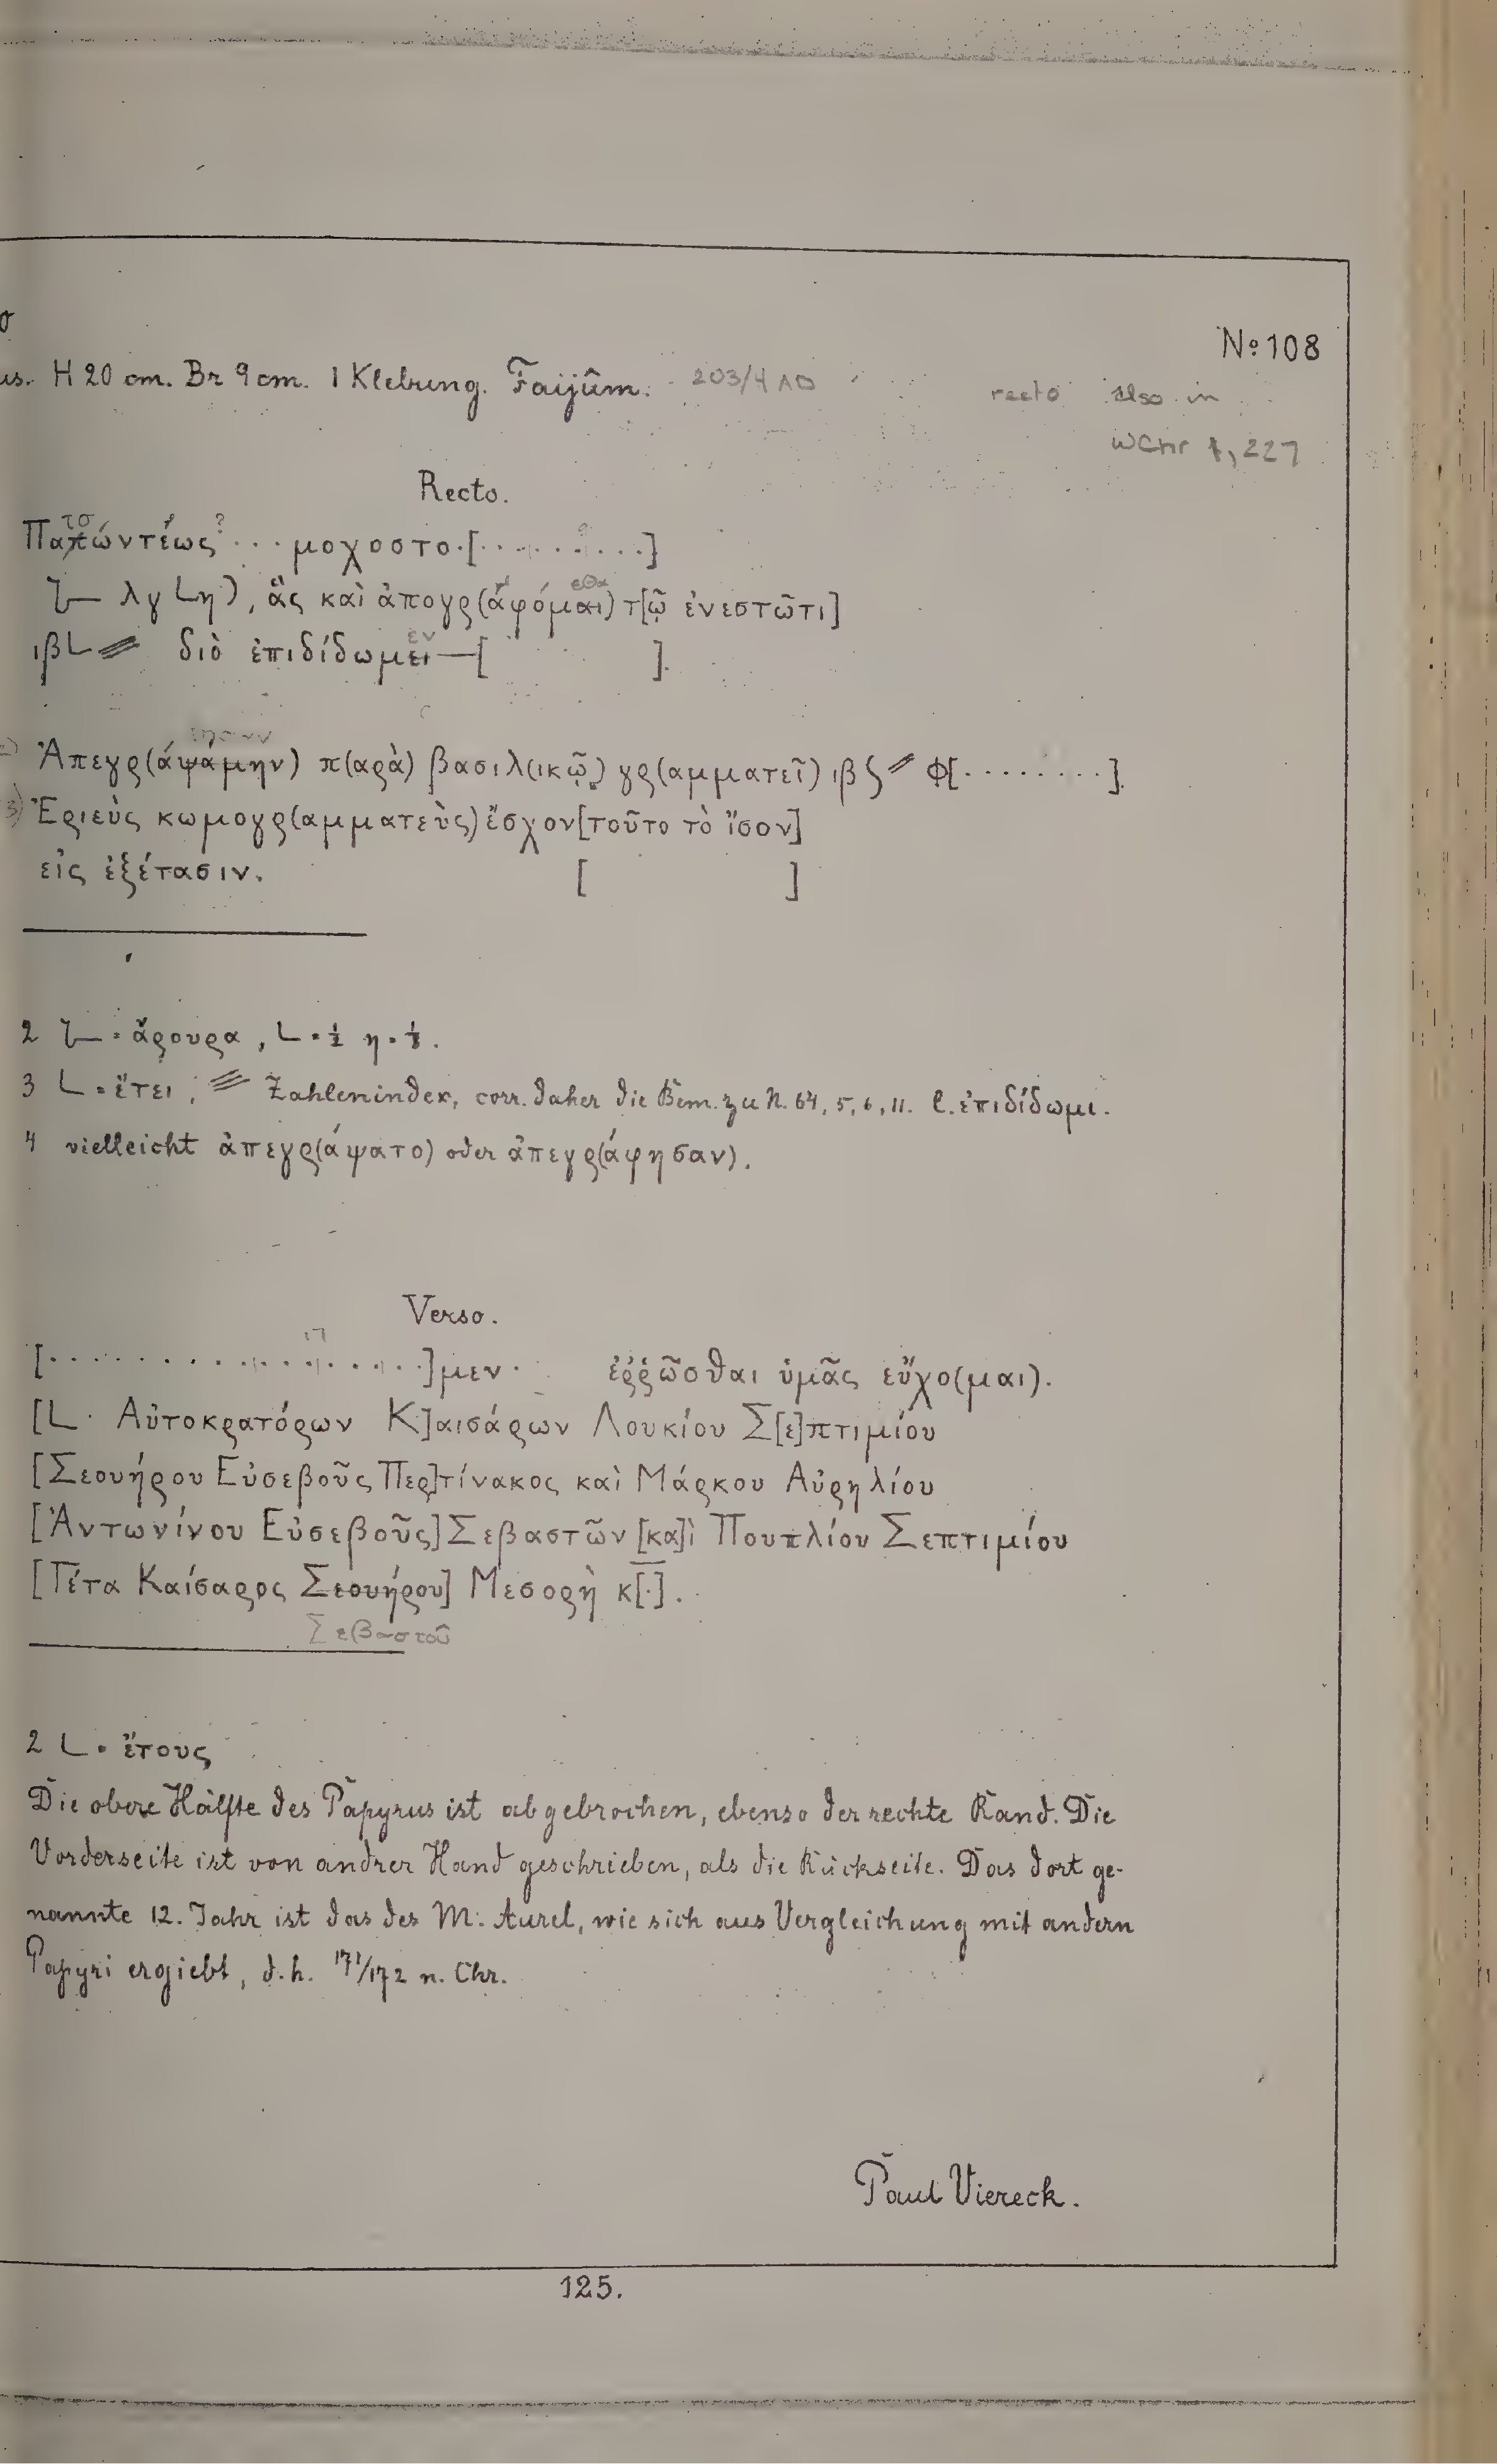 σ
us. H 20 cm. Br 9 cm. 1 Klebung. Faijûm. 203/4 AD
Nº 108
recto also in
WChr 1, 227
Recto.
τσ ´ ?
Παπώντέως ... μοχοστο.[.........]
εθα
𐅵— λγ 𐅵η), ἃς καὶ ἀπογρ(άφόμαι) τ[ῷ ἐνεστῶτι]
εν
ιβL⫽ διὸ ἐπιδίδωμει—[ ].
ησαν
2) Ἀπεγρ(άψάμην) π(αρὰ) βασιλ(ικῷ) γρ(αμματεῖ) ιβ ϛ⫽ Φ[........].
3) Ἑριεὺς κωμογρ(αμματεὺς) ἔσχον[τοῦτο τὸ ἴσον]
εἰς ἐξέτασιν. [ ]
2 𐅵— = ἄρουρα, L = ½ η = ⅛.
3 L = ἔτει, ⫽ Zahlenindex, corr. daher die Bem. zu N. 64, 5, 6, 11. l. ἐπιδίδωμι.
4 vielleicht ἀπεγρ(άψατο) oder ἀπεγρ(άφησαν).
Verso.
17
[..................]μεν. ἐῤῥῶσθαι ὑμᾶς εὔχο(μαι).
[L. Αὐτοκρατόρων Κ]αισάρων Λουκίου Σ[ε]πτιμίου
[Σεουήρου Εὐσεβοῦς Περ]τίνακος καὶ Μάρκου Αὐρηλίου
[Ἀντωνίνου Εὐσεβοῦς] Σεβαστῶν [κα]ὶ Πουπλίου Σεπτιμίου
[Γέτα Καίσαρος Σεουήρου] Μεσορὴ κ[.].
Σεβαστοῦ
2 L = ἔτους
Die obere Hälfte des Papyrus ist abgebrochen, ebenso der rechte Rand. Die
Vorderseite ist von andrer Hand geschrieben, als die Rückseite. Das dort ge-
nannte 12. Jahr ist das des M. Aurel, wie sich aus Vergleichung mit andern
Papyri ergiebt, d. h. 171/172 n. Chr.
Paul Viereck.
125.